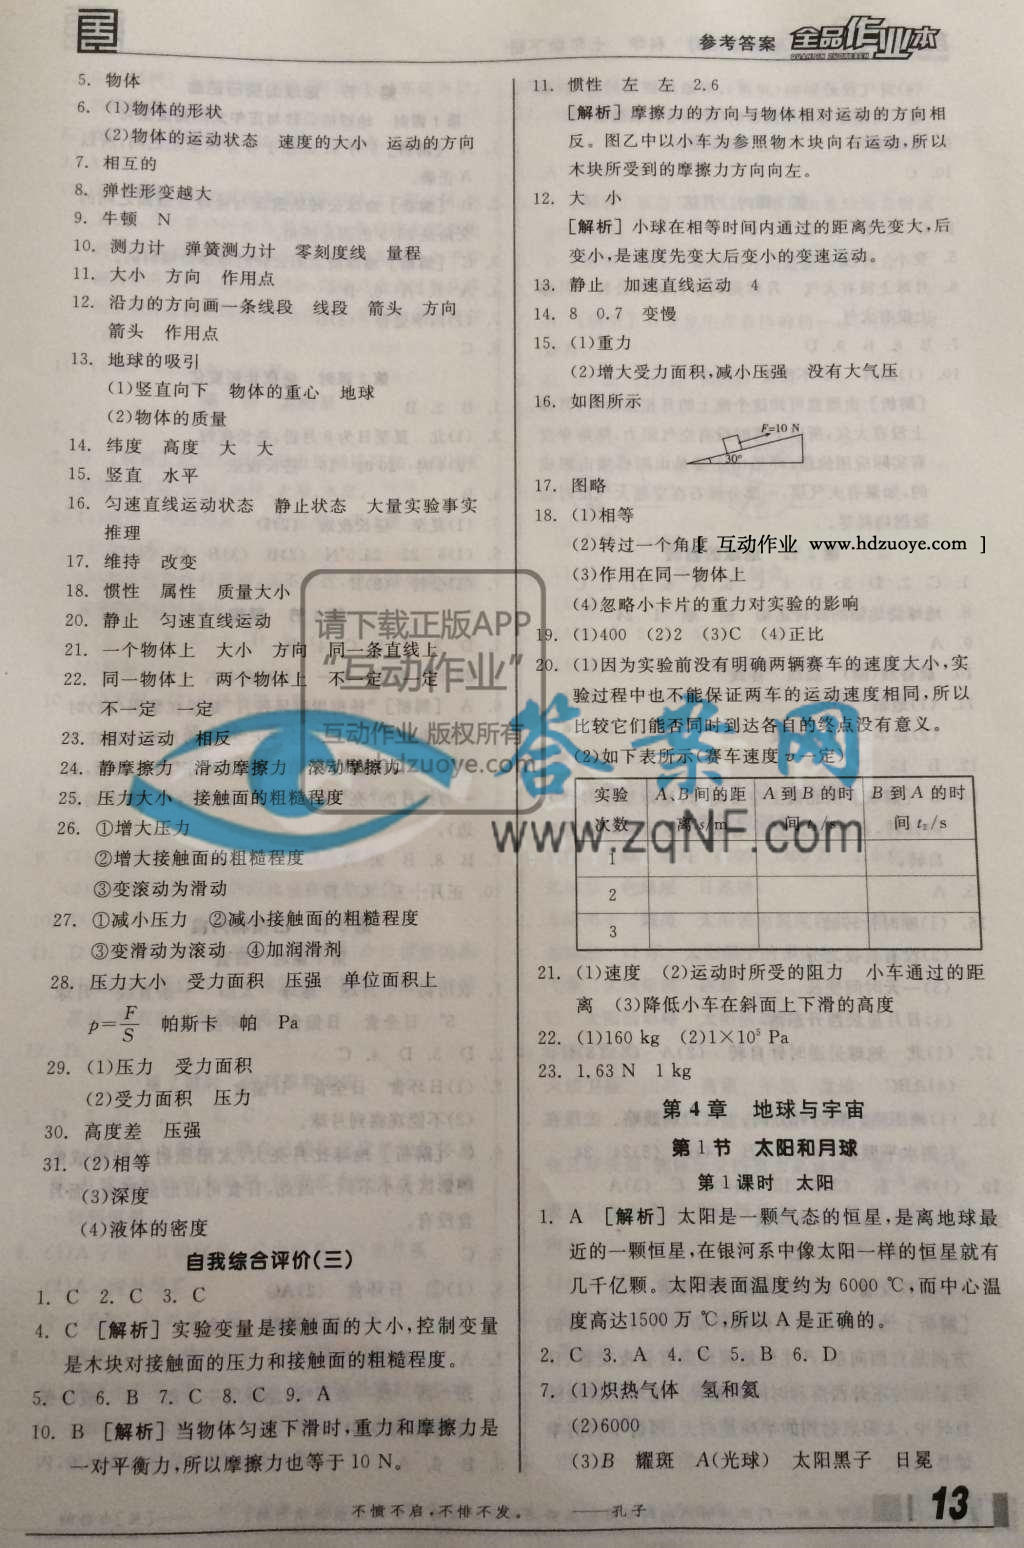 参考答案 全品作业本
5. 物体
6. (1)物体的形状
(2)物体的运动状态 速度的大小 运动的方向
7. 相互的
8. 弹性形变越大
9. 牛顿 N
10. 测力计 弹簧测力计 零刻度线 量程
11. 大小 方向 作用点
12. 沿力的方向画一条线段 线段 箭头 方向
箭头 作用点
13. 地球的吸引
(1)竖直向下 物体的重心 地球
(2)物体的质量
14. 纬度 高度 大 大
15. 竖直 水平
16. 匀速直线运动状态 静止状态 大量实验事实
推理
17. 维持 改变
18. 惯性 属性 质量大小
20. 静止 匀速直线运动
21. 一个物体上 大小 方向 同一条直线上
22. 同一物体上 两个物体上 不一定 一定
不一定 一定
23. 相对运动 相反
24. 静摩擦力 滑动摩擦力 滚动摩擦力
25. 压力大小 接触面的粗糙程度
26. ①增大压力
②增大接触面的粗糙程度
③变滚动为滑动
27. ①减小压力 ②减小接触面的粗糙程度
③变滑动为滚动 ④加润滑剂
28. 压力大小 受力面积 压强 单位面积上
p=F/S 帕斯卡 帕 Pa
29. (1)压力 受力面积
(2)受力面积 压力
30. 高度差 压强
31. (2)相等
(3)深度
(4)液体的密度
自我综合评价(三)
1. C 2. C 3. C
4. C [解析] 实验变量是接触面的大小,控制变量
是木块对接触面的压力和接触面的粗糙程度。
5. C 6. B 7. C 8. C 9. A
10. B [解析] 当物体匀速下滑时,重力和摩擦力是
一对平衡力,所以摩擦力也等于 10 N。
11. 惯性 左 左 2.6
[解析] 摩擦力的方向与物体相对运动的方向相
反。图乙中以小车为参照物木块向右运动,所以
木块所受到的摩擦力方向向左。
12. 大 小
[解析] 小球在相等时间内通过的距离先变大,后
变小,是速度先变大后变小的变速运动。
13. 静止 加速直线运动 4
14. 8 0.7 变慢
15. (1)重力
(2)增大受力面积,减小压强 没有大气压
16. 如图所示
F=10 N
30°
17. 图略
18. (1)相等
(2)转过一个角度 [ 互动作业 www.hdzuoye.com ]
(3)作用在同一物体上
(4)忽略小卡片的重力对实验的影响
19. (1)400 (2)2 (3)C (4)正比
20. (1)因为实验前没有明确两辆赛车的速度大小,实
验过程中也不能保证两车的运动速度相同,所以
比较它们能否同时到达各自的终点没有意义。
(2)如下表所示(赛车速度 v 一定)
实验 A、B间的距 A 到 B 的时 B 到 A 的时
次数 离 s/m 间 t₁/s 间 t₂/s
1
2
3
21. (1)速度 (2)运动时所受的阻力 小车通过的距
离 (3)降低小车在斜面上下滑的高度
22. (1)160 kg (2)1×10⁵ Pa
23. 1.63 N 1 kg
第 4 章 地球与宇宙
第 1 节 太阳和月球
第 1 课时 太阳
1. A [解析] 太阳是一颗气态的恒星,是离地球最
近的一颗恒星,在银河系中像太阳一样的恒星就有
几千亿颗。太阳表面温度约为 6000 ℃,而中心温
度高达1500 万 ℃,所以 A 是正确的。
2. C 3. A 4. C 5. B 6. D
7. (1)炽热气体 氢和氦
(2)6000
(3)B 耀斑 A(光球) 太阳黑子 日冕
请下载正版APP
“互动作业”
互动作业 版权所有
www.hdzuoye.com
答案网
www.zqNF.com
不愤不启,不悱不发。 ——孔子
13